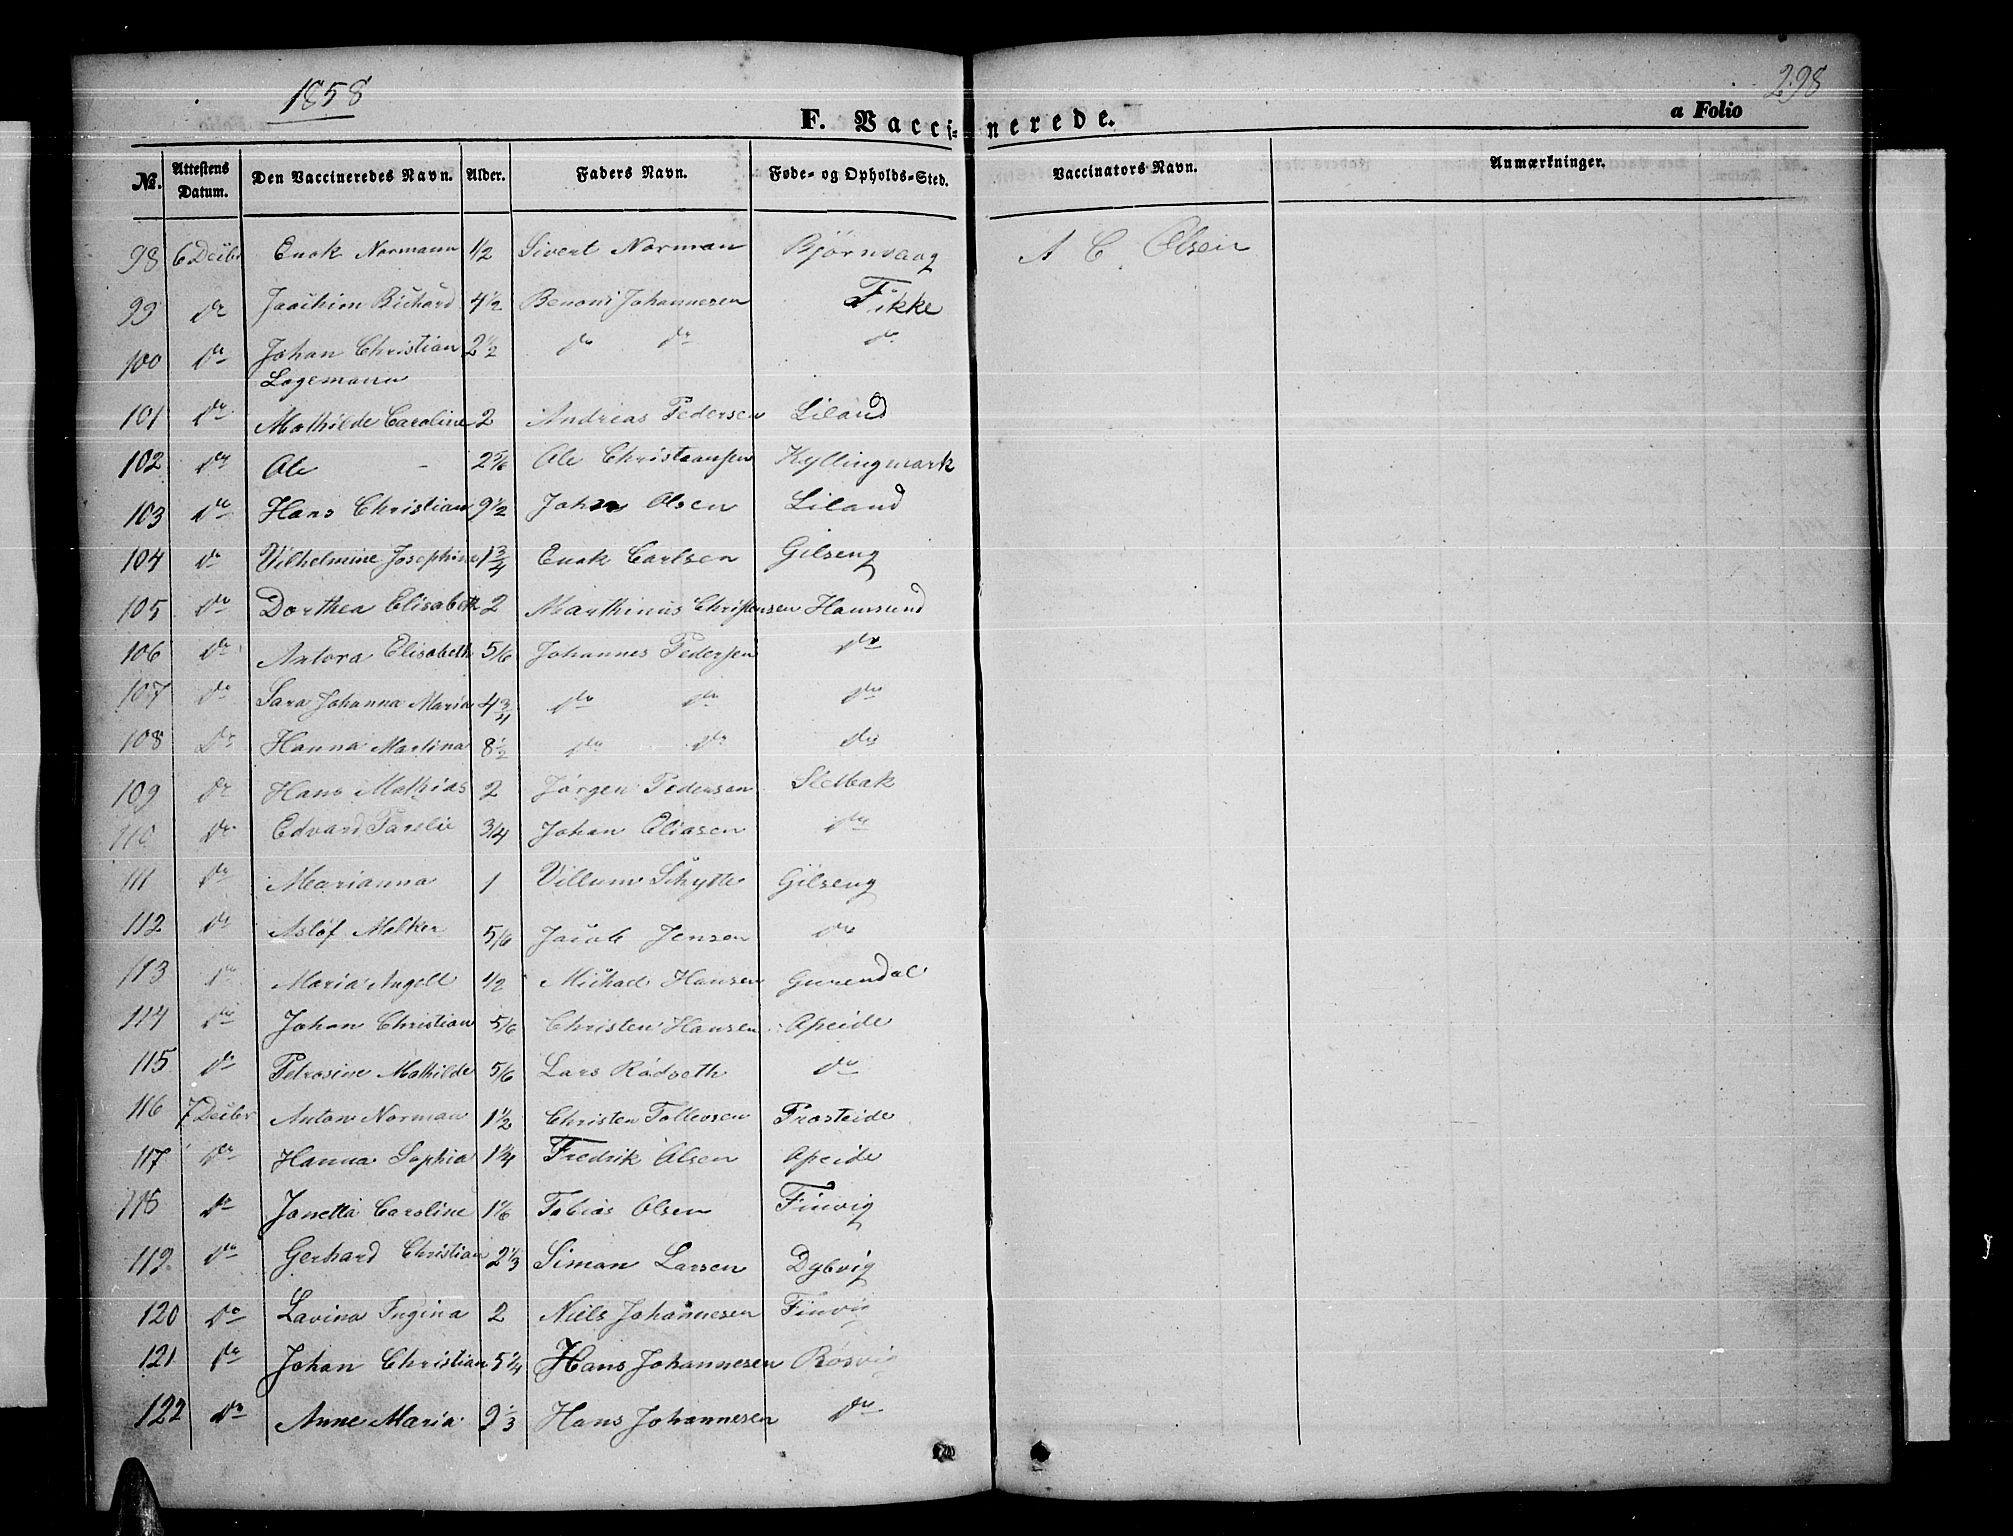 1858
298
F. Vacci- nerede.
a Folio
No. Attestens Datum. Den Vaccineredes Navn. Alder. Faders Navn. Føde- og Opholds-Sted. Vaccinators Navn. Anmærkninger.
98 6 Decbr Enok Normann 1/2 Sivert Norman Bjørnvaag A C. Olsen
99 do Joachim Richard 4 1/2 Benoni Johannesen Fikke
100 do Johan Christian 2 1/2 do do do
Lagemann
101 do Mathilde Caroline 2 Andreas Pedersen Liland
102 do Ole - 2 5/6 Ole Christiansen Kyllingmark
103 do Hans Christian 9 1/2 Johan Olsen Liland
104 do Vilhelmine Josephine 1 3/4 Enok Carlsen Gilseng
105 do Dorthea Elisabeth 2 Marthinus Christensen Hamsund
106 do Antora Elisabeth 5/6 Johannes Pedersen do
107 do Sara Johanna Maria 4 3/4 do do do
108 do Hanna Martina 8 1/2 do do do
109 do Hans Mathias 2 Jørgen Pedersen Sletbak
110 do Edvard Parelie 3/4 Johan Eliasen do
111 do Marianna 1 Villum Schytte Gilseng
112 do Asløf Melker 5/6 Jacob Jensen do
113 do Maria Angell 1/2 Michael Hansen
114 do Johan Christian 5/6 Christen Hansen Apeide
115 do Petrosine Mathilde 5/6 Lars Rødseth do
116 7 Decbr Anton Norman 1 1/2 Christen Tollevsen Prosteide
117 do Hanna Sophia 1 1/4 Fredrik Olsen Apeide
118 do Janetta Caroline 1 1/6 Tobias Olsen Finvig
119 do Gerhard Christian 2 1/3 Simon Larsen Dybvig
120 do Lavina Ingina 2 Niels Johannesen Finvig
121 do Johan Christian 5 1/4 Hans Johannesen Røsvig
122 do Anne Maria 9 1/3 Hans Johannesen do